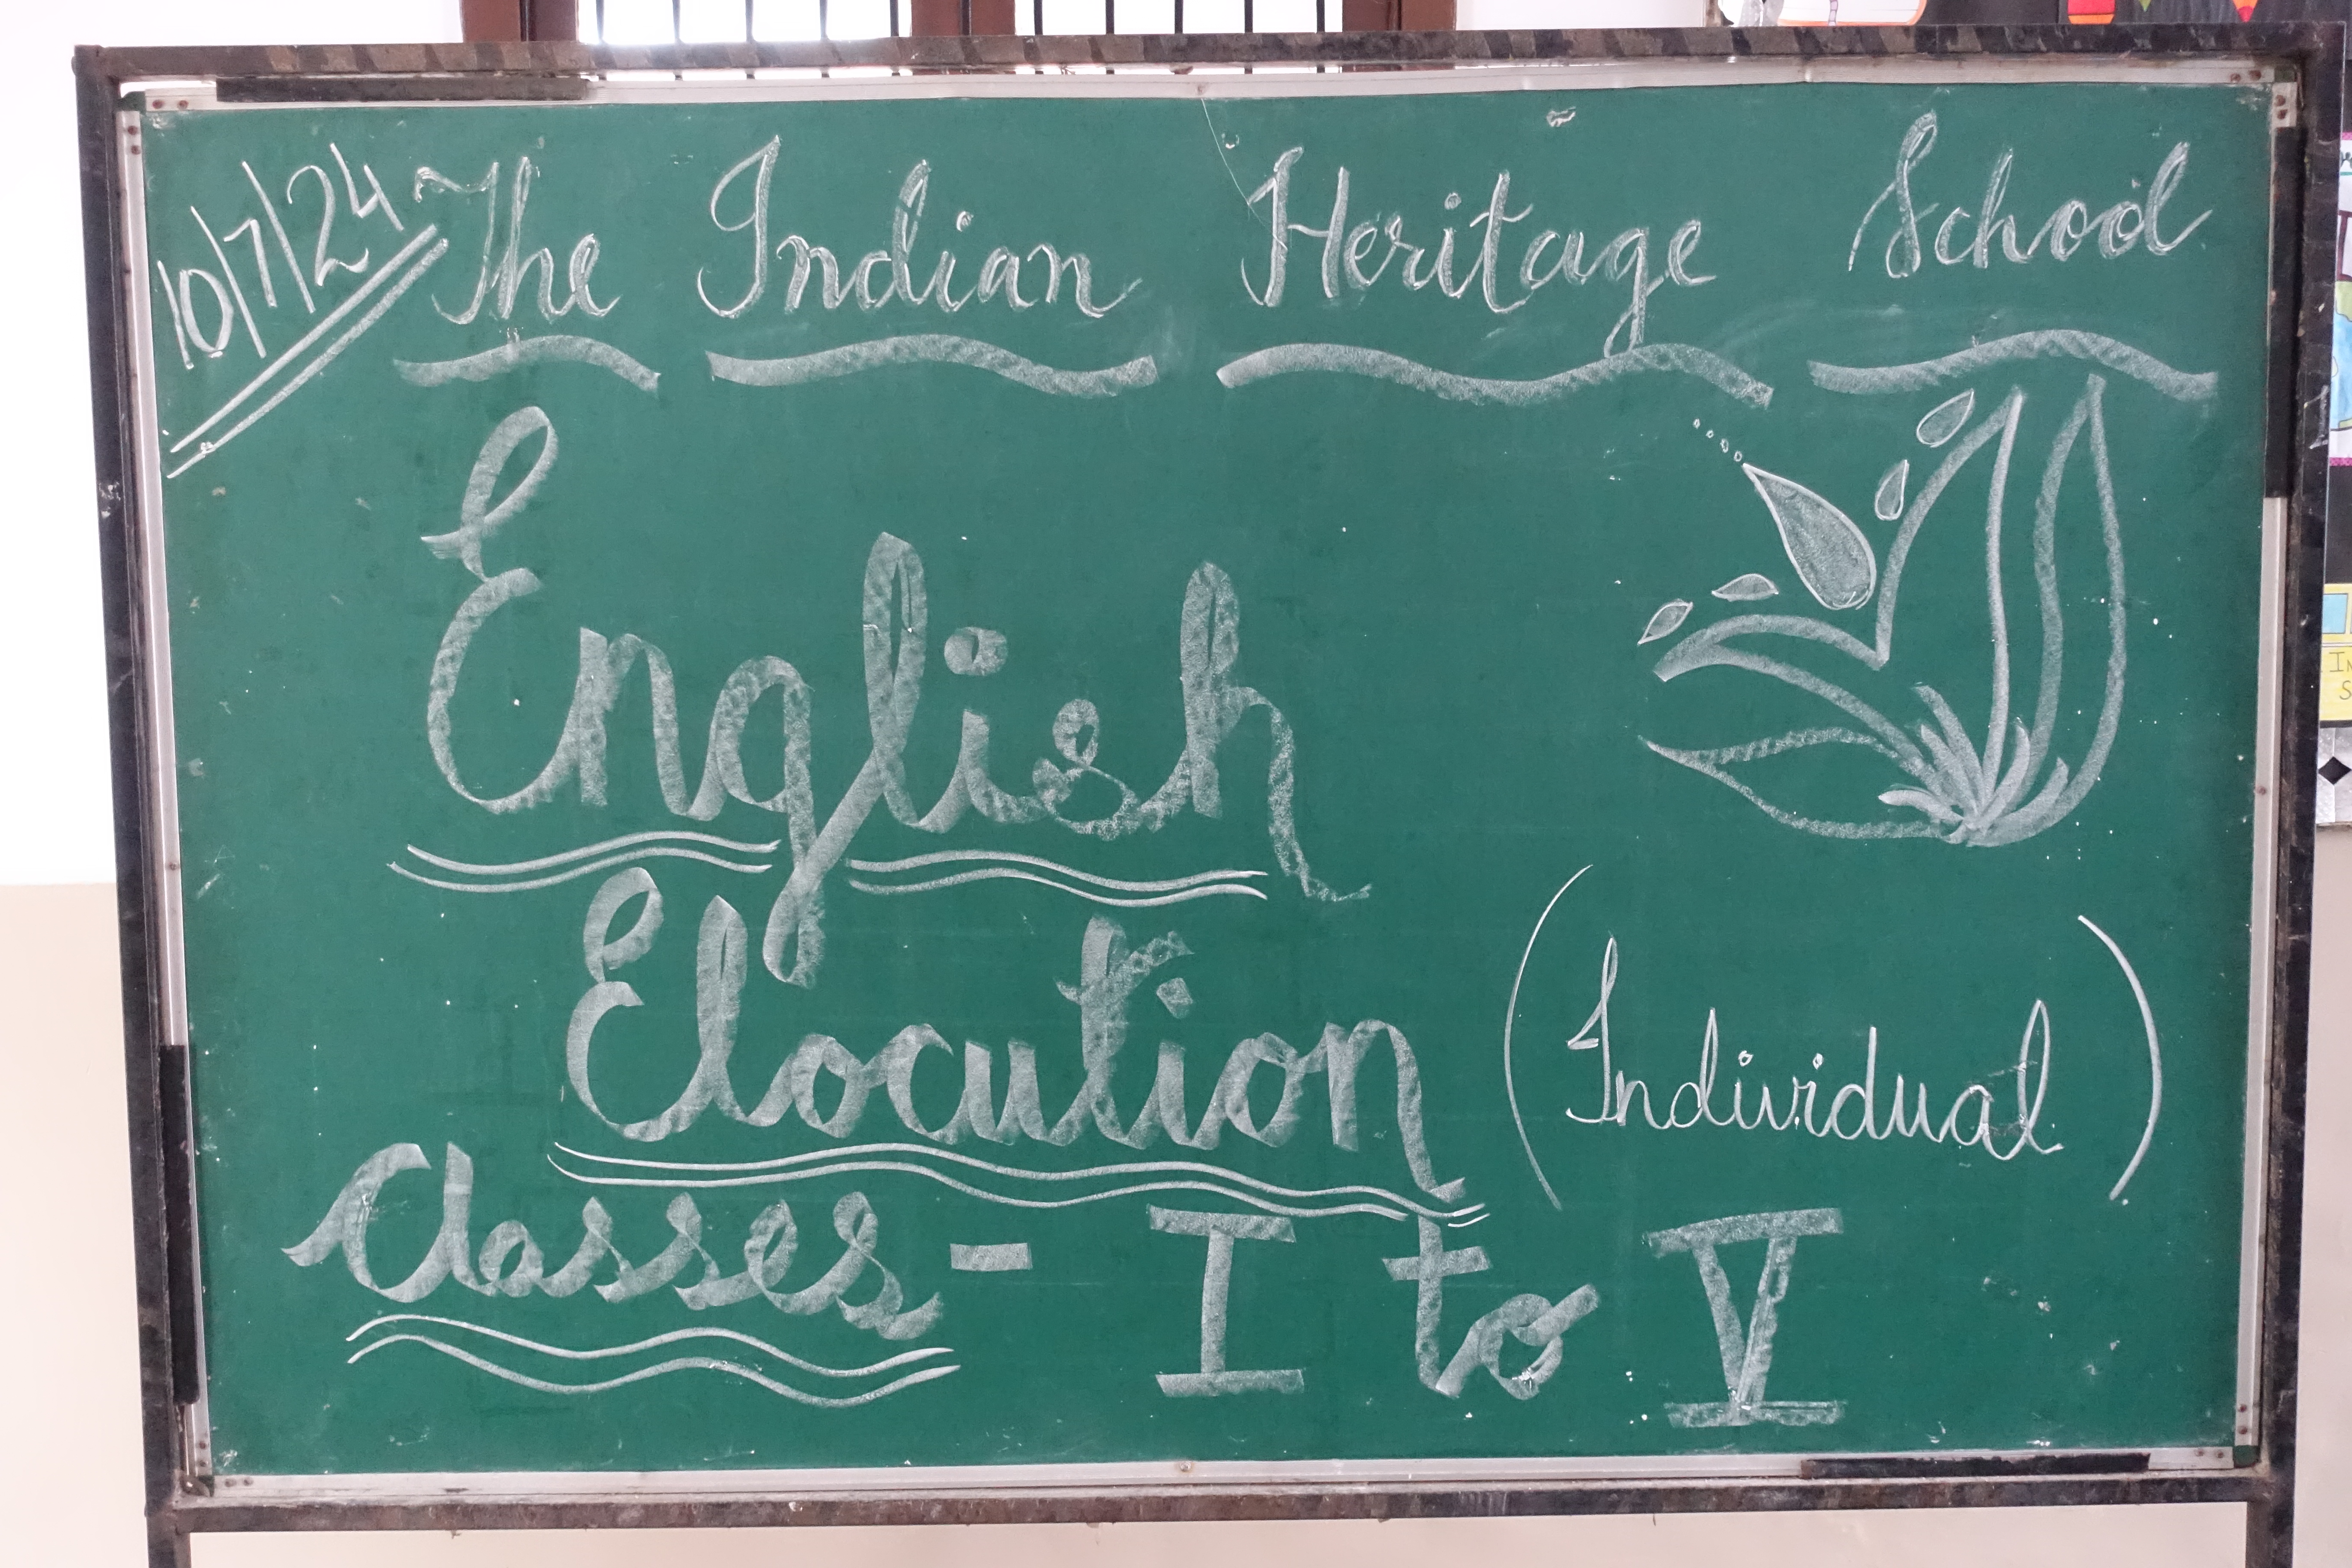 10/7/24 The Indian Heritage School
English
Elocution (Individual)
Classes - I to V